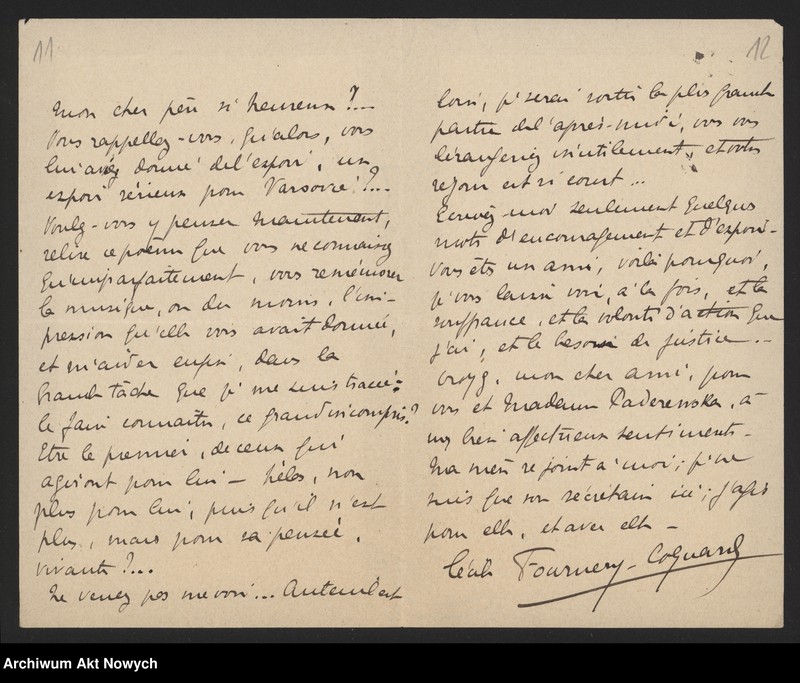 11
mon cher père si heureux ?...
Vous rappellez-vous, qu'alors, vous
lui avez donné de l'espoir, un
espoir sérieux pour Varsovie ?...
Voulez-vous y penser maintenant,
relire ce poème que vous ne connaissez
qu'imparfaitement, vous remémorer
la musique, ou du moins, l'im-
pression qu'elle vous avait donnée,
et m'aider enfin, dans la
grande tâche que je me suis tracée :
le faire connaître, ce grand incompris ?
Etre le premier, de ceux qui
agiront pour lui — hélas, non
plus pour lui, puisqu'il n'est
plus, mais pour sa pensée,
vivante ?...
Ne venez pas me voir... Auteuil est
12
loin, je serai sortie la plus grande
partie de l'après-midi, vous vous
dérangeriez inutilement, et votre
séjour est si court...
Ecrivez-moi seulement quelques
mots d'encouragement et d'espoir -
Vous êtes un ami, voilà pourquoi,
je vous laisse voir, à la fois, et la
souffrance, et la volonté d'action que
j'ai, et le besoin de justice ..
Croyez, mon cher ami, pour
vous et Madame Paderewska, à
mes bien affectueux sentiments -
Ma mère se joint à moi ; je ne
suis que son secrétaire ici ; j'agis
pour elle, et avec elle -
Cécile Fournery-Coquard
Archiwum Akt Nowych